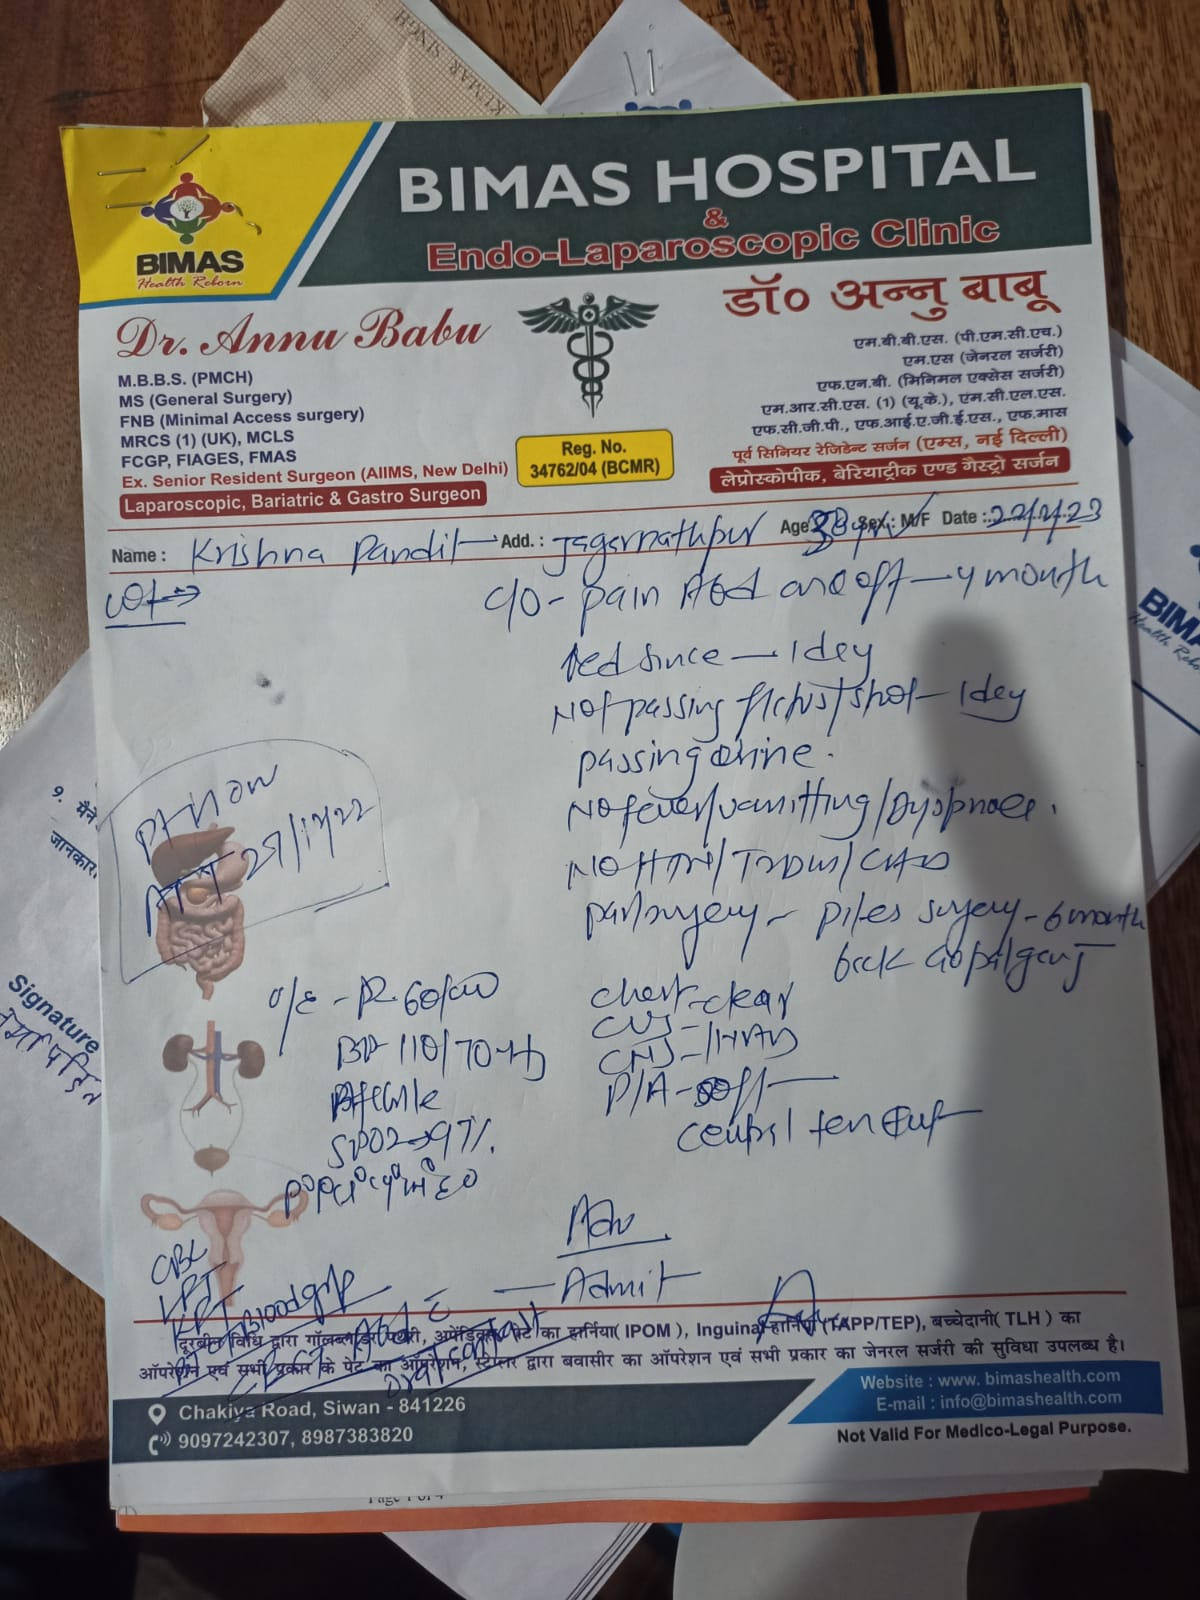 KUMAR SINGH
BIMAS HOSPITAL
&
Endo-Laparoscopic Clinic
BIMAS
Health Reborn
Dr. Annu Babu
M.B.B.S. (PMCH)
MS (General Surgery)
FNB (Minimal Access surgery)
MRCS (1) (UK), MCLS
FCGP, FIAGES, FMAS
Ex. Senior Resident Surgeon (AIIMS, New Delhi)
Laparoscopic, Bariatric & Gastro Surgeon
Reg. No.
34762/04 (BCMR)
डॉ० अन्नु बाबू
एम.बी.बी.एस. (पी.एम.सी.एच.)
एम.एस (जेनरल सर्जरी)
एफ.एन.बी. (मिनिमल एक्सेस सर्जरी)
एम.आर.सी.एस. (1) (यू.के.), एम.सी.एल.एस.
एफ.सी.जी.पी., एफ.आई.ए.जी.ई.एस., एफ.मास
पूर्व सिनियर रेजिडेन्ट सर्जन (एम्स, नई दिल्ली)
लेप्रोस्कोपीक, बेरियाट्रीक एण्ड गैस्ट्रो सर्जन
Name : Krishna Pandit Add. : Jagarnathpur Age 38 yr Sex : M/F Date :
C/O - pain Abd on & off - 4 month
since - 1 day
Not passing - 1 day
passing urine.
No fever/vomitting/Dyspnoea.
No HTN/T2DM/CAD
surgery - piles surgery - 6 month
back Gopalganj
Pt now
ATT
O/E - PR
BP 110/70
Afebrile
SPO2 → 97%.
chest - clear
CVS -
CNS -
P/A - soft
central
Adv
Admit
CBC
LFT
KFT
Blood grp
oral contrast
दूरबीन विधि द्वारा गॉलब्लाडर पथरी, अपेंडिक्स, पेट का हार्निया( IPOM ), Inguinal हार्निया (TAPP/TEP), बच्चेदानी( TLH ) का
ऑपरेशन एवं सभी प्रकार कि पेट का ऑपरेशन, स्टेप्लर द्वारा बवासीर का ऑपरेशन एवं सभी प्रकार का जेनरल सर्जरी की सुविधा उपलब्ध है।
Chakiya Road, Siwan - 841226
9097242307, 8987383820
Website : www. bimashealth.com
E-mail : info@bimashealth.com
Not Valid For Medico-Legal Purpose.
१. मैंने
जानकार
Signature
BIMA
Health Rebo